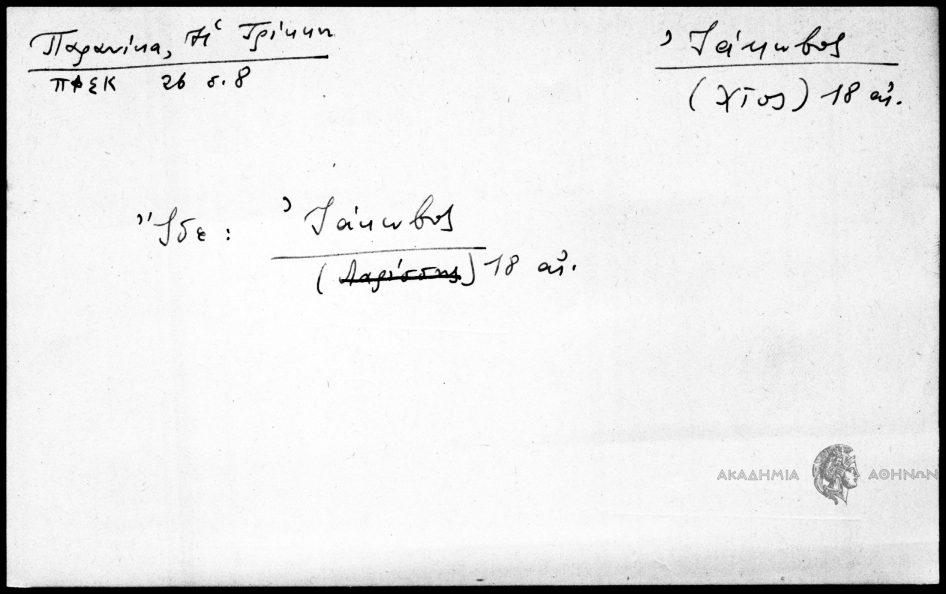 Παρανίκα, Ἡ Τρίκκη
ΠΦΣΚ 26 σ. 8
Ἰάκωβος
(Χῖος) 18 αἰ.
Ἴδε: Ἰάκωβος
(Λαρίσσης) 18 αἰ.
ΑΚΑΔΗΜΙΑ ΑΘΗΝΩΝ